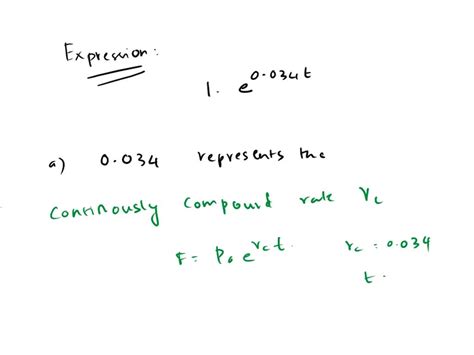 Expression:
1. e^0.034t
a) 0.034 represents the
continously compound rate r_c
F = P_0 e^{r_c t}. r_c = 0.034
t.